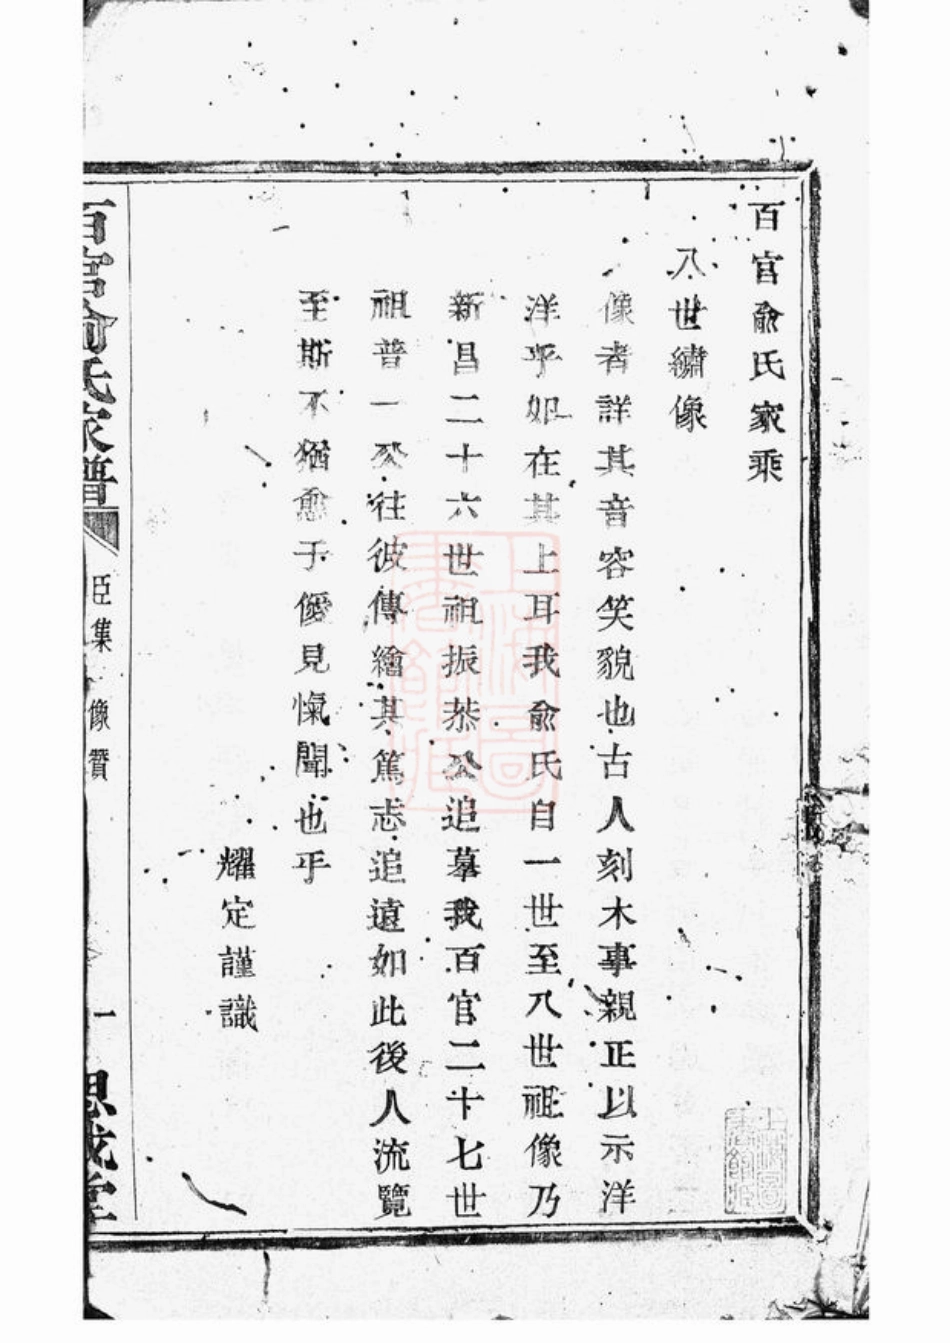 百官俞氏家乘
八世繡像
像者詳其音容笑貌也古人刻木事親正以示洋
洋乎如在其上耳我俞氏自一世至八世祖像乃
新昌二十六世祖振恭公追摹我百官二十七世
祖普一公往彼傳繪其篤志追遠如此後人流覽
至斯不猶愈于僾見愾聞也乎
耀定謹識
百官俞氏家譜
臣集
像贊
一
思成堂
上海圖書館藏
上海圖書館藏